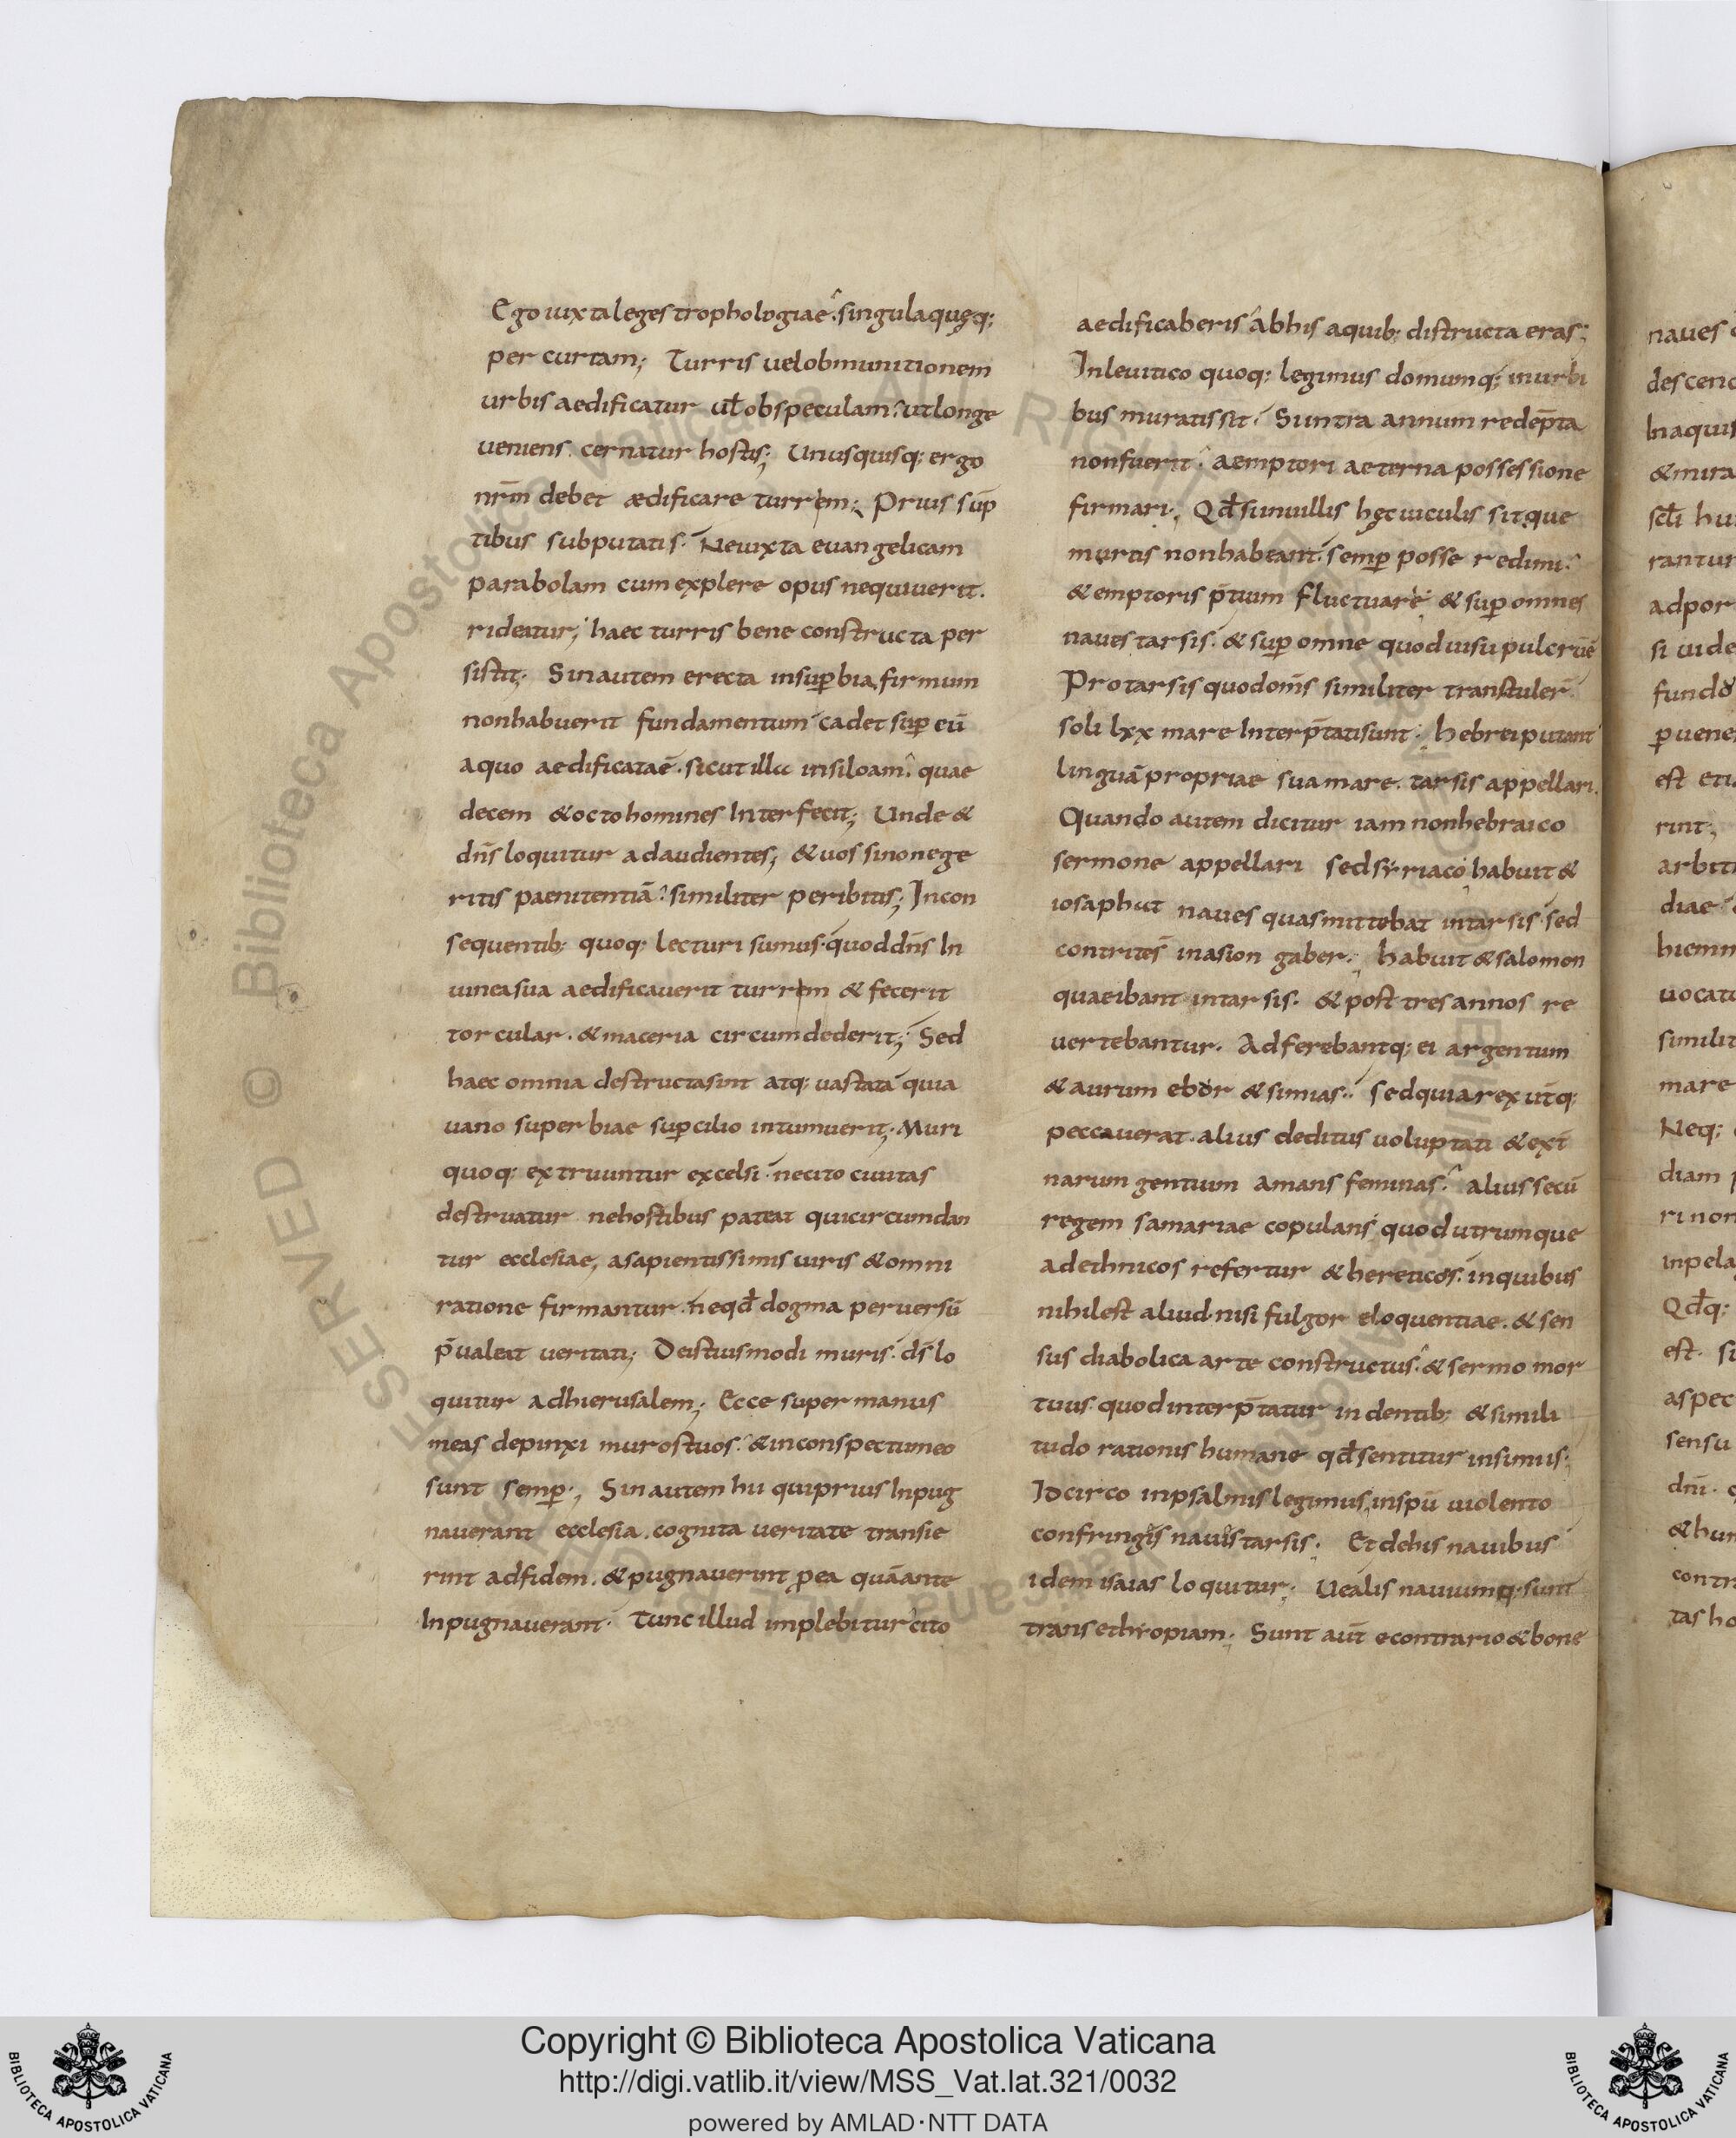 Ego iuxta leges trophologiae. singula quęq;
per curram; Turris uel ob munitionem
urbis aedificatur uł ob speculam. ut longe
ueniens cernatur hostis; Unusquisq; ergo
nrm̄ debet ædificare turrem; Prius sūp
tibus subputatis. Ne iuxta euangelicam
parabolam cum explere opus nequiuerit.
rideatur; haec turris bene constructa per
sistit; Sin autem erecta in sup̱bia, firmum
non habuerit fundamentum cadet sup̱ eū
a quo aedificata ē. sicut illa in siloam. quae
decem & octo homines Interfecit; Unde &
dn̄s loquitur ad audientes; & uos si non ege
ritis paenitentiā. similiter peribitis; In con
sequentib; quoq; lecturi sumus. quod dn̄s In
uinea sua aedificauerit turrem & fecerit
torcular. & maceria circumdederit; Sed
haec omnia destructa sint atq; uastata quia
uano superbiae sup̱cilio intumuerit; Muri
quoq; extruuntur excelsi. ne cito ciuitas
destruatur ne hostibus pateat qui circumdan
tur ecclesiae, a sapientissimis uiris & omni
ratione firmantur. ne qđ dogma peruersū
p̄ualeat ueritati; De istiusmodi muris. ds̄ lo
quitur ad hierusalem; Ecce super manus
meas depinxi muros tuos. & in conspectu meo
sunt semp̱; Sin autem hii qui prius Inpug
nauerant ecclesia. cognita ueritate transie
rint ad fidem. & pugnauerint p̱ ea quā ante
Inpugnauerant. Tunc illud implebitur cito
aedificaberis ab his a quib; distructa eras;
In leuitico quoq; legimus domumq; in urbi
bus muratis sit. Si intra annum redēpta
non fuerit. a emptori aeterna possessione
firmari; Qđ si in uillis hęc uiculis sit que
muris non habeant. semp̱ posse redimi.
& emptoris p̄tium fluctuare & sup̱ omnes
naues tarsis. & sup̱ omne quod uisu pulcrū ē
Pro tarsis quod om̄s similiter transtuler̄
soli lxx mare Interp̄tati sunt; hebrei putant
linguā propriae sua mare. tarsis appellari.
Quando autem dicitur iam non hebraico
sermone appellari sed syriaco; habuit &
iosaphat naues quas mittebat in tarsis. sed
contrite s̄ in asion gaber; habuit & salomon
quae ibant in tarsis. & post tres annos re
uertebantur. Adferebantq; ei argentum
& aurum ebor & simias; sed quia rex utq;
peccauerat. alius deditus uoluptati & ext̄
narum gentium amans feminas. alius secū
regem samariae copulans quod utrumque
ad ethnicos refertur & hereticos. in quibus
nihil est aliud. nisi fulgor eloquentiae. & sen
sus diabolica arte constructus. & sermo mor
tuus. quod interp̄tatur in dentib; & simili
tudo rationis humane qđ sentitur in simiis.
Idcirco in psalmis legimus, in spū uiolento
confringis nauis tarsis; Et de his nauibus
idem isaias loquitur; Ue alis nauium q; sunt
trans ethiopiam; Sunt aut̄ e contrario & bone
Copyright © Biblioteca Apostolica Vaticana
http://digi.vatlib.it/view/MSS_Vat.lat.321/0032
powered by AMLAD·NTT DATA